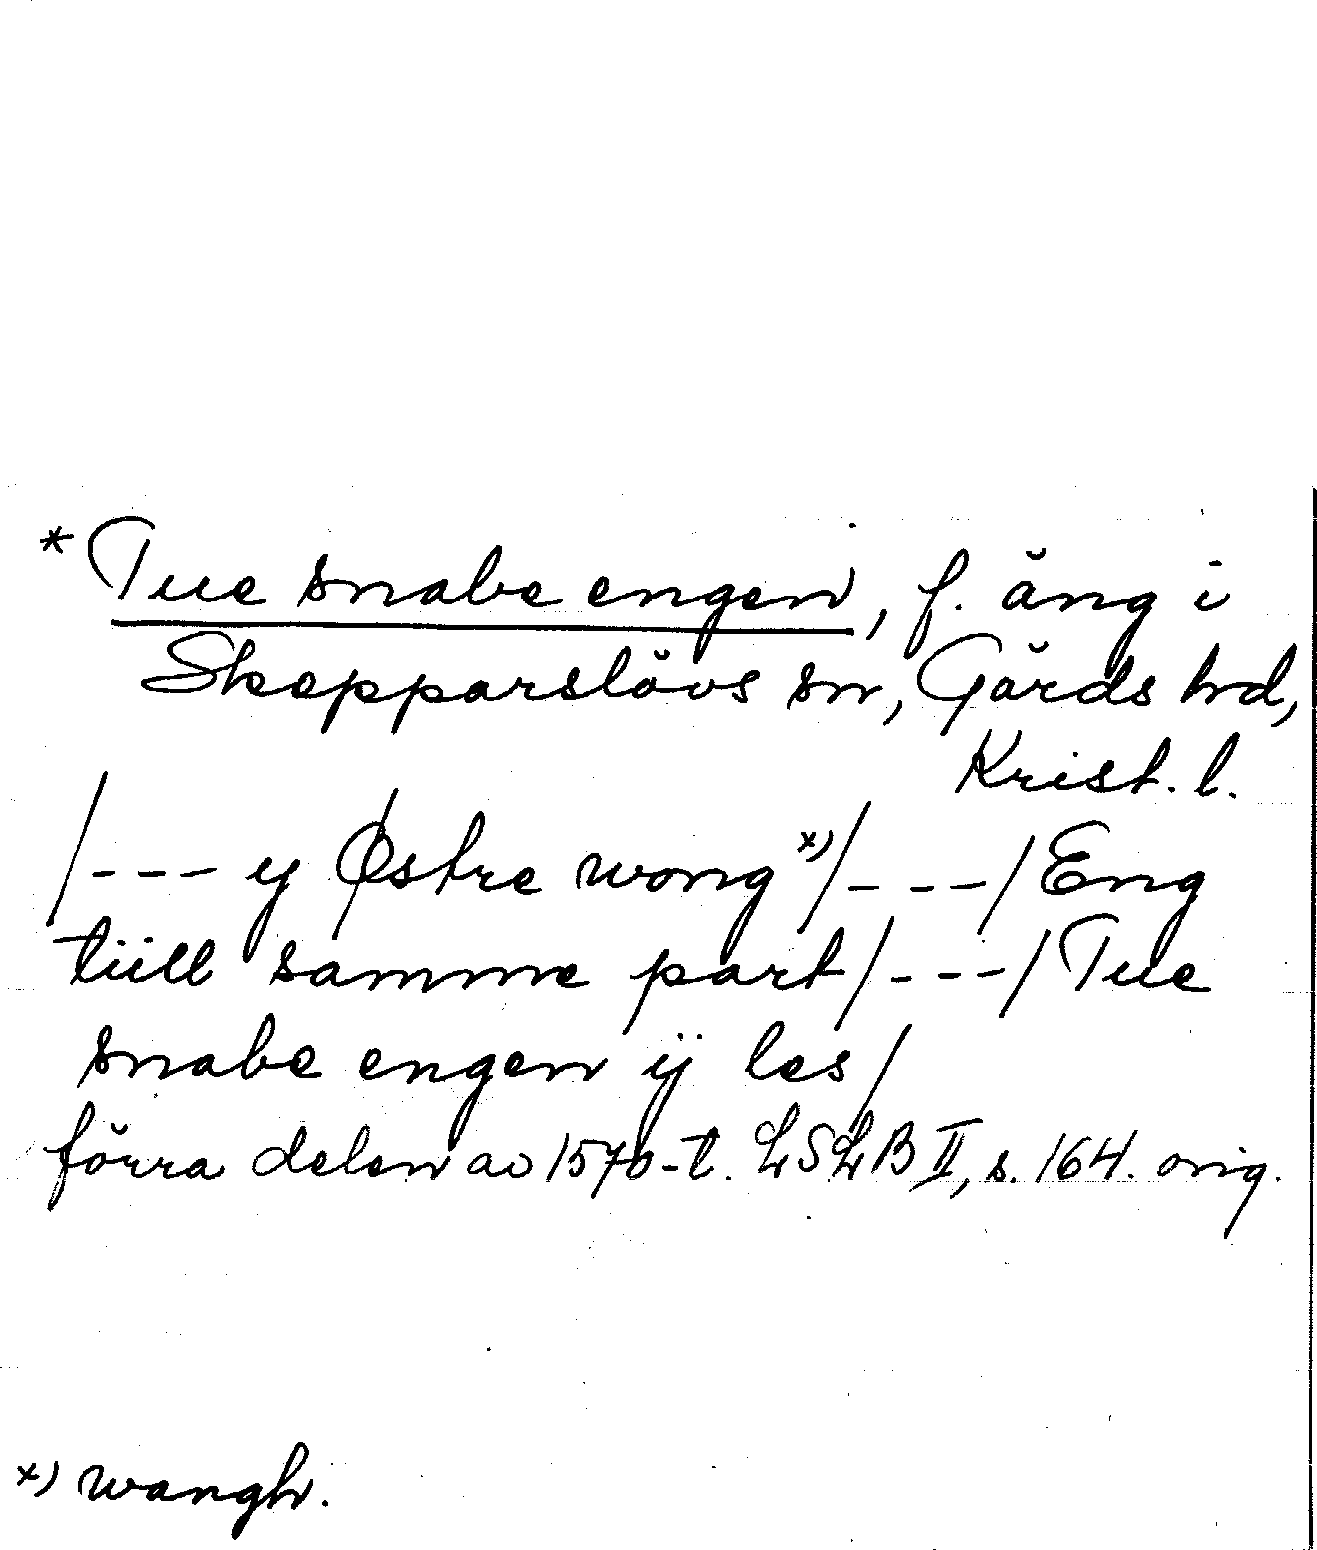 * Tue snabe engen, f. äng i
Skepparslövs sn, Gärds hd,
Krist. l.
/--- y Østre wong x)/---/ Eng
tüll samme part/---/ Tue
snabe engen ÿ les/
förra delen av 1570-t. LSLB II, s. 164. orig.
x) wangh.